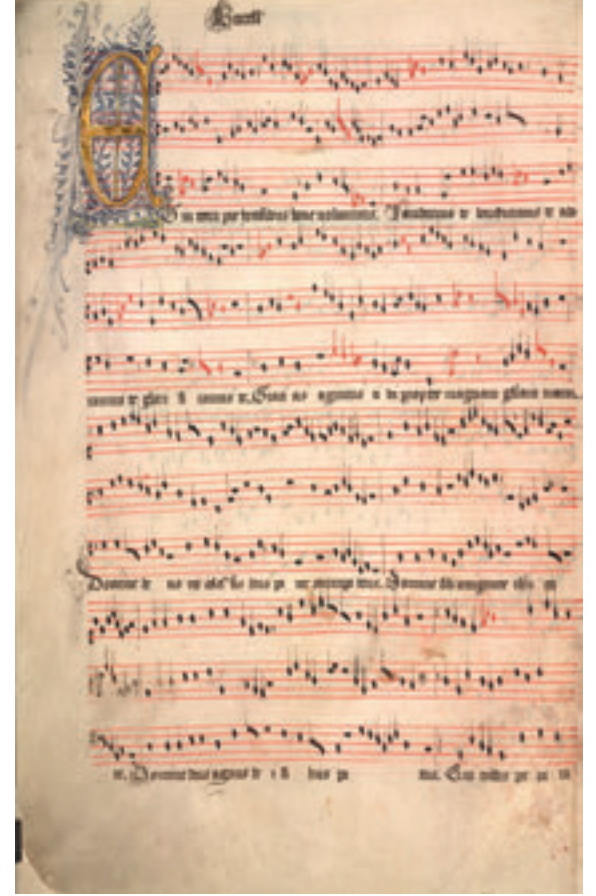 Burell
Et in terra pax hominibus bone voluntatis. Laudamus te benedicimus te ado
ramus te glori fi camus te. Gracias agimus ti bi propter magnam gloriam tuam
Domine de us rex deus pa ter omnipotens. Domine fili unigenite
te. Domine deus agnus de i fi lius pa tris. Qui tollis pec ca ta